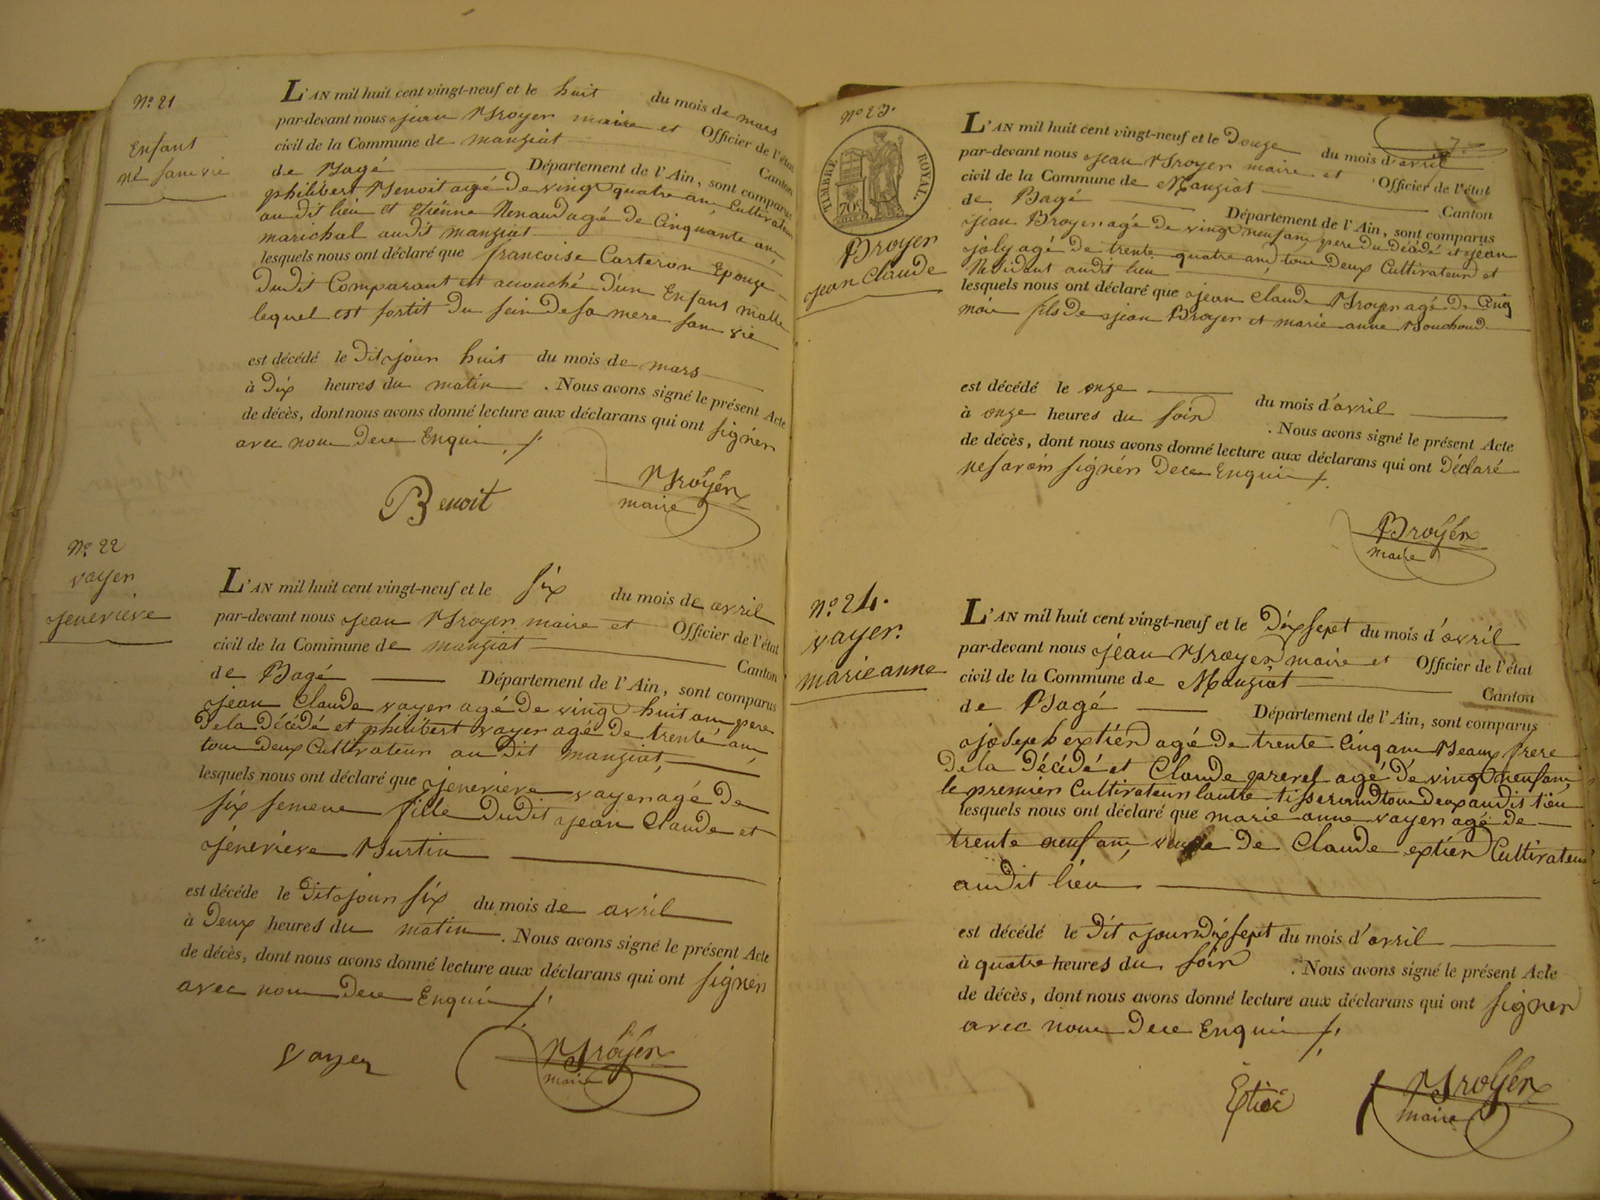 N.º 21
Enfant
né sans vie
L'AN mil huit cent vingt-neuf et le huit du mois de mars
par-devant nous jean Broyer maire et Officier de l'état
civil de la Commune de manziat Canton
de Bagé Département de l'Ain, sont comparus
philibert Benoit agé de vingt quatre ans Cultivateur
au dit lieu et Etiénne Renaud agé de Cinquante ans
marichal audit manziat
lesquels nous ont déclaré que francoise Carteron Epouze
dudit Comparant est acouché d'un Enfant malle
lequel est sortit du sein de sa mere san vie
est décédé le dit jour huit du mois de mars
à dix heures du matin. Nous avons signé le présent Acte
de décès, dont nous avons donné lecture aux déclarans qui ont signer
avec nous dece Enquis
Benoit
Broyér
maire
N.º 22
vayer
jeneviève
L'AN mil huit cent vingt-neuf et le six du mois de avril
par-devant nous jean Broyer maire et Officier de l'état
civil de la Commune de manziat Canton
de Bagé Département de l'Ain, sont comparus
jean Claude vayer agé de vingt huit ans pere
de la décédé et philibert vayer agé de trente ans
tous deux Cultivateur au dit manziat
lesquels nous ont déclaré que jenevieve vayer agé de
six semene fille dudit jean Claude et
jéneviéve Burtin
est décéde le dit jour six du mois de avril
à deux heures du matin. Nous avons signé le présent Acte
de décès, dont nous avons donné lecture aux déclarans qui ont signer
avec nous dece Enquis
vayer
Broyér
maire
N.º 23.
TIMBRE ROYAL
70c
Broyer
jean Claude
7.
L'AN mil huit cent vingt-neuf et le douze du mois d'avril
par-devant nous jean Broyer maire et Officier de l'état
civil de la Commune de Manziat Canton
de Bagé Département de l'Ain, sont comparus
jean Broyer agé de vingt neuf ans pere du décédé et jean
joly agé de trente quatre ans tous deux Cultivateurs et
Residant audit lieu
lesquels nous ont déclaré que jean Claude Broyer agé de Cinq
mois fils de jean Broyer et marie anne Bouchoud
est décédé le onze du mois d'avril
à onze heures du soir. Nous avons signé le présent Acte
de décès, dont nous avons donné lecture aux déclarans qui ont déclaré
ne savoir signér dece Enquis
Broyér
maire
N.º 24.
vayer.
marie anne
L'AN mil huit cent vingt-neuf et le dix sept du mois d'avril
par-devant nous jean Broeyer maire et Officier de l'état
civil de la Commune de Manziat Canton
de Bagé Département de l'Ain, sont comparus
joseph extiér agé de trente Cinq ans Beaux frere
de la décédé et Claude prevel agé de vingt neuf ans
le premier Cultivateur l'autre tisserand tous deux audit lieu
lesquels nous ont déclaré que marie anne vayer agé de
trente neuf ans veuve de Claude extier Cultivateur
audit lieu
est décédé le dit jour dix sept du mois d'avril
à quatre heures du soir. Nous avons signé le présent Acte
de décès, dont nous avons donné lecture aux déclarans qui ont signer
avec nous dece Enquis
Broyér
maire